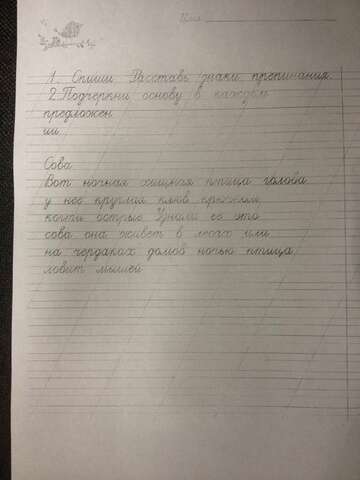 Имя
1. Спиши Расставь знаки препинания.
2. Подчеркни основу в каждом
предложен
ии
Сова
Вот ночная хищная птица голова
у неё круглая клюв крючком
когти острые Узнали её это
сова она живёт в лесах или
на чердаках домов ночью птица
ловит мышей